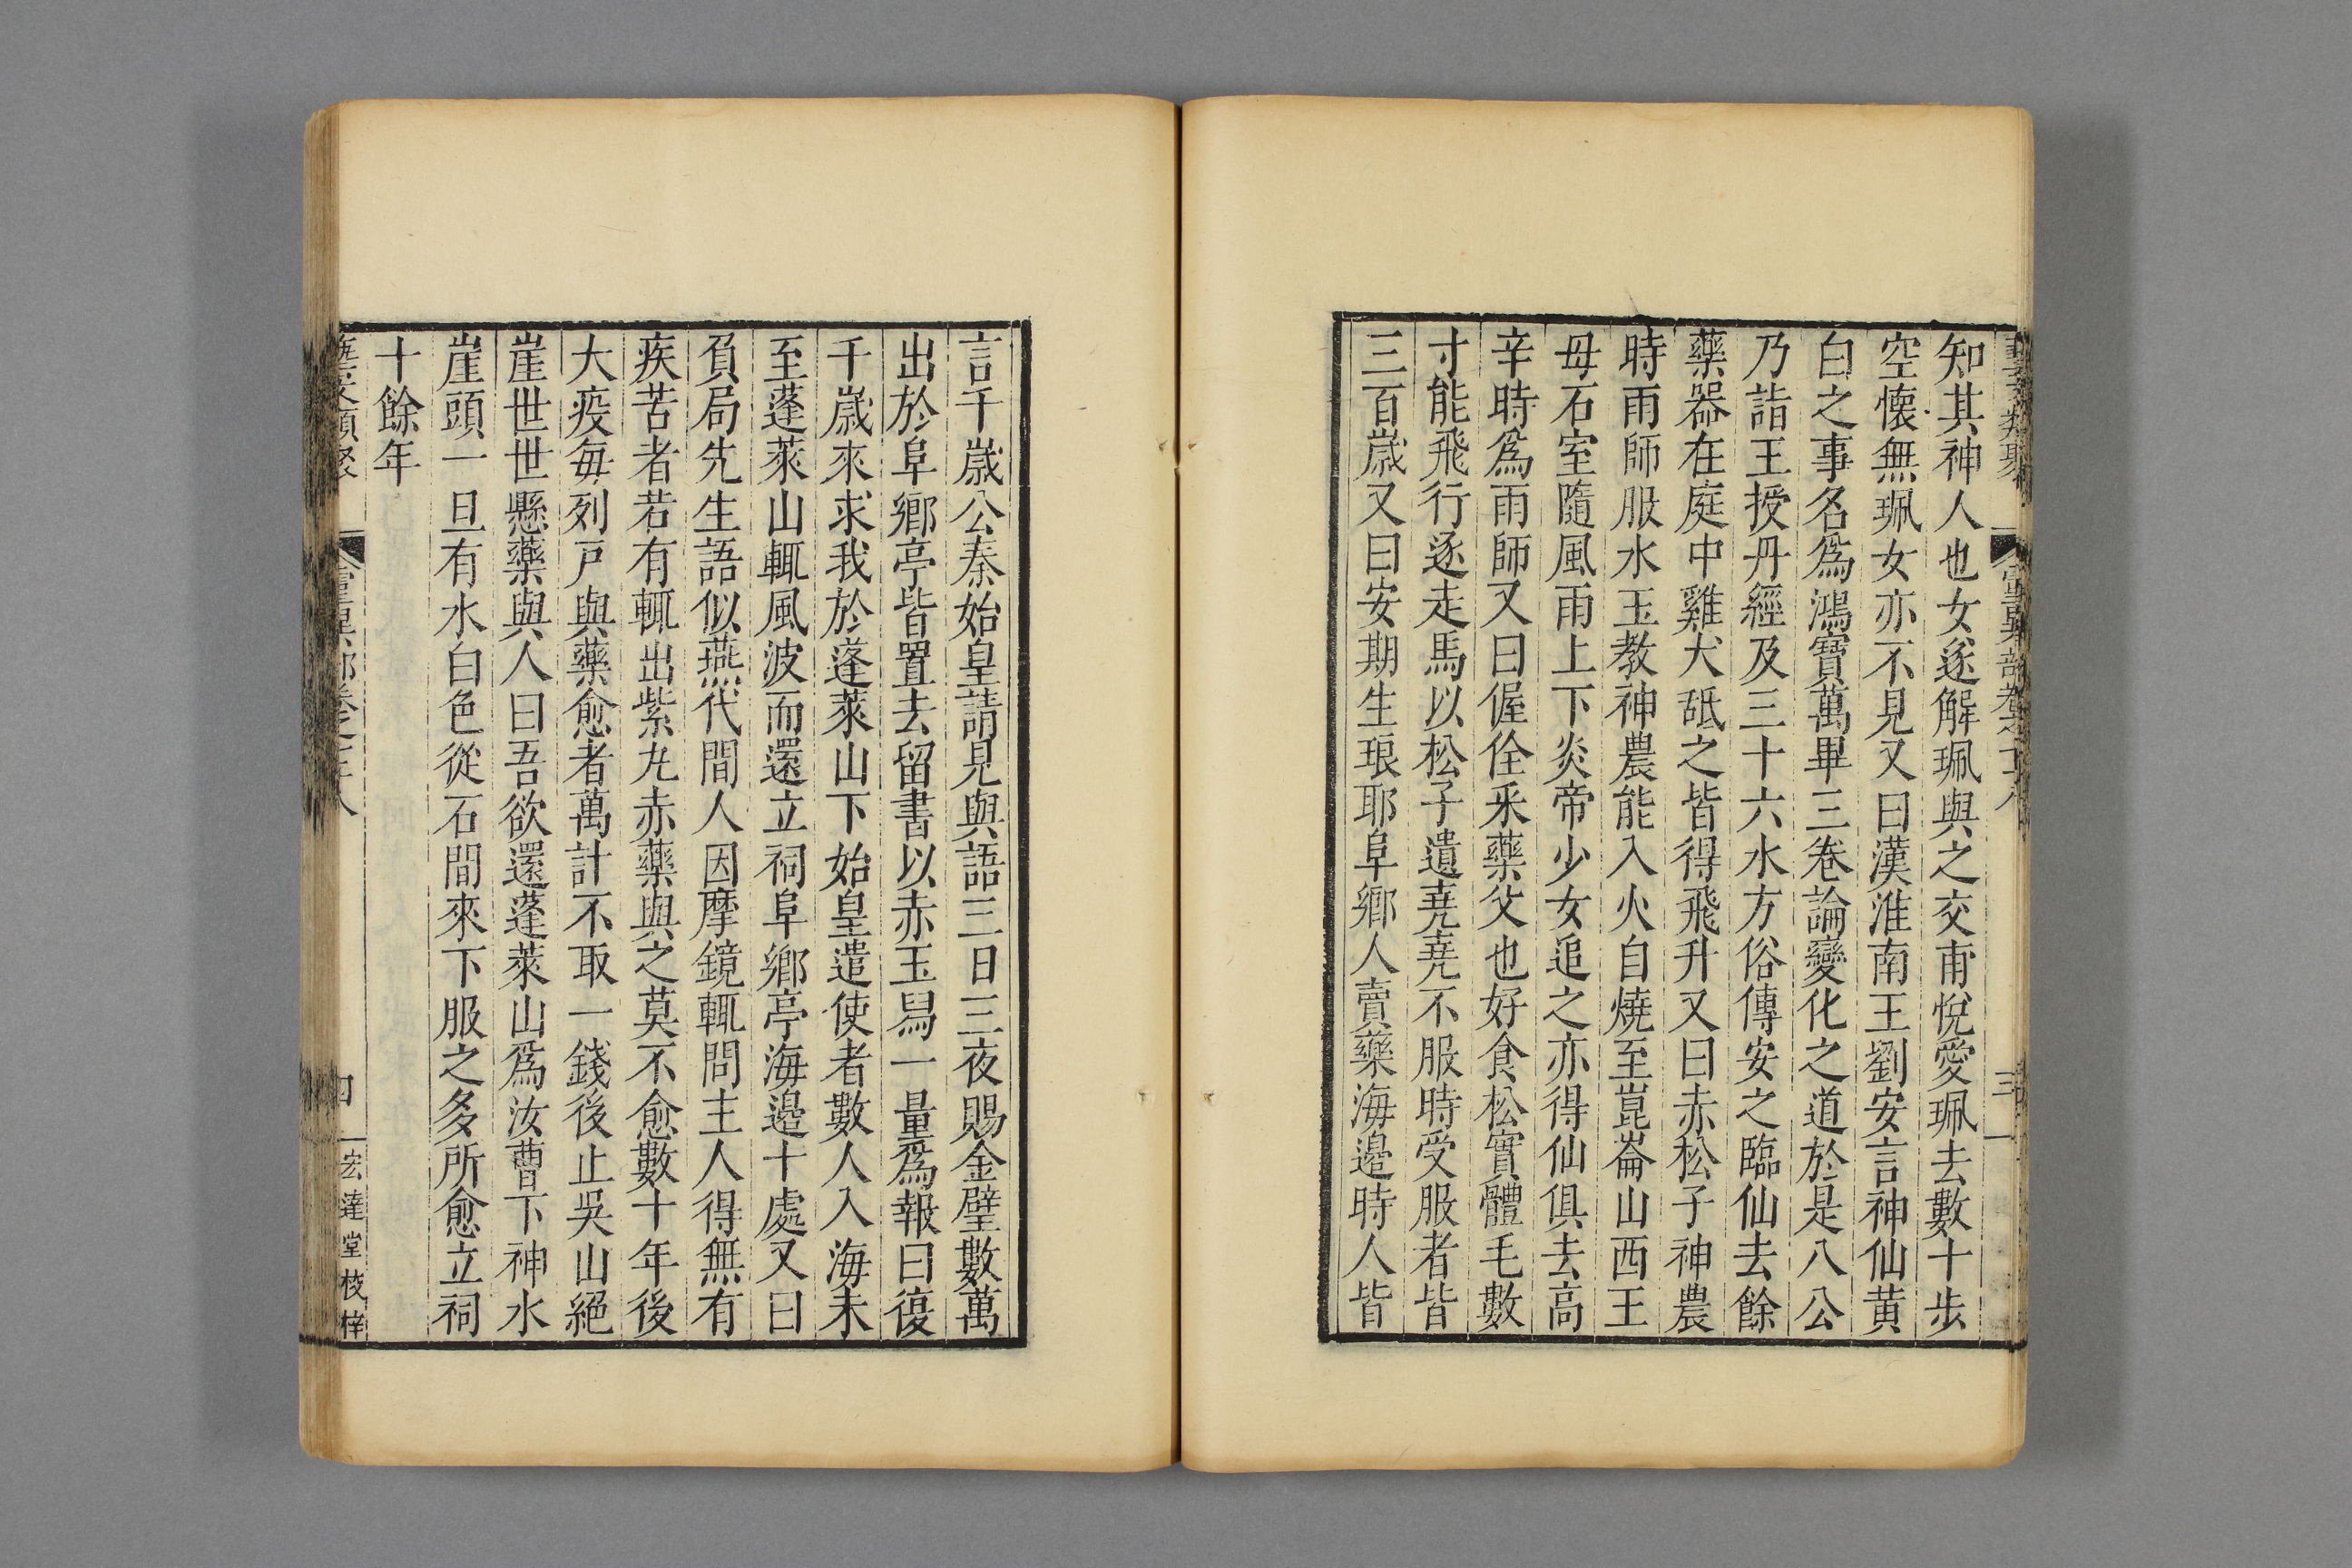 知其神人也女遂解珮與之交甫悅愛珮去數十步
空懷無珮女亦不見又曰漢淮南王劉安言神仙黃
白之事名爲鴻寶萬畢三卷論變化之道於是八公
乃詣王授丹經及三十六水方俗傳安之臨仙去餘
藥器在庭中雞犬舐之皆得飛升又曰赤松子神農
時雨師服水玉教神農能入火自燒至崑崙山西王
母石室隨風雨上下炎帝少女追之亦得仙俱去高
辛時爲雨師又曰偓佺采藥父也好食松實體毛數
寸能飛行逐走馬以松子遺堯堯不服時受服者皆
三百歲又曰安期生琅耶阜鄉人賣藥海邊時人皆
言千歲公秦始皇請見與語三日三夜賜金璧數萬
出於阜鄉亭皆置去留書以赤玉舄一量爲報曰復
千歲來求我於蓬萊山下始皇遣使者數人入海未
至蓬萊山輒風波而還立祠阜鄉亭海邊十處又曰
負局先生語似燕代間人因摩鏡輒問主人得無有
疾苦者若有輒出紫丸赤藥與之莫不愈數十年後
大疫每列戶與藥愈者萬計不取一錢後止吳山絕
崖世世懸藥與人曰吾欲還蓬萊山爲汝曹下神水
崖頭一旦有水白色從石間來下服之多所愈立祠
十餘年
宏達堂校梓